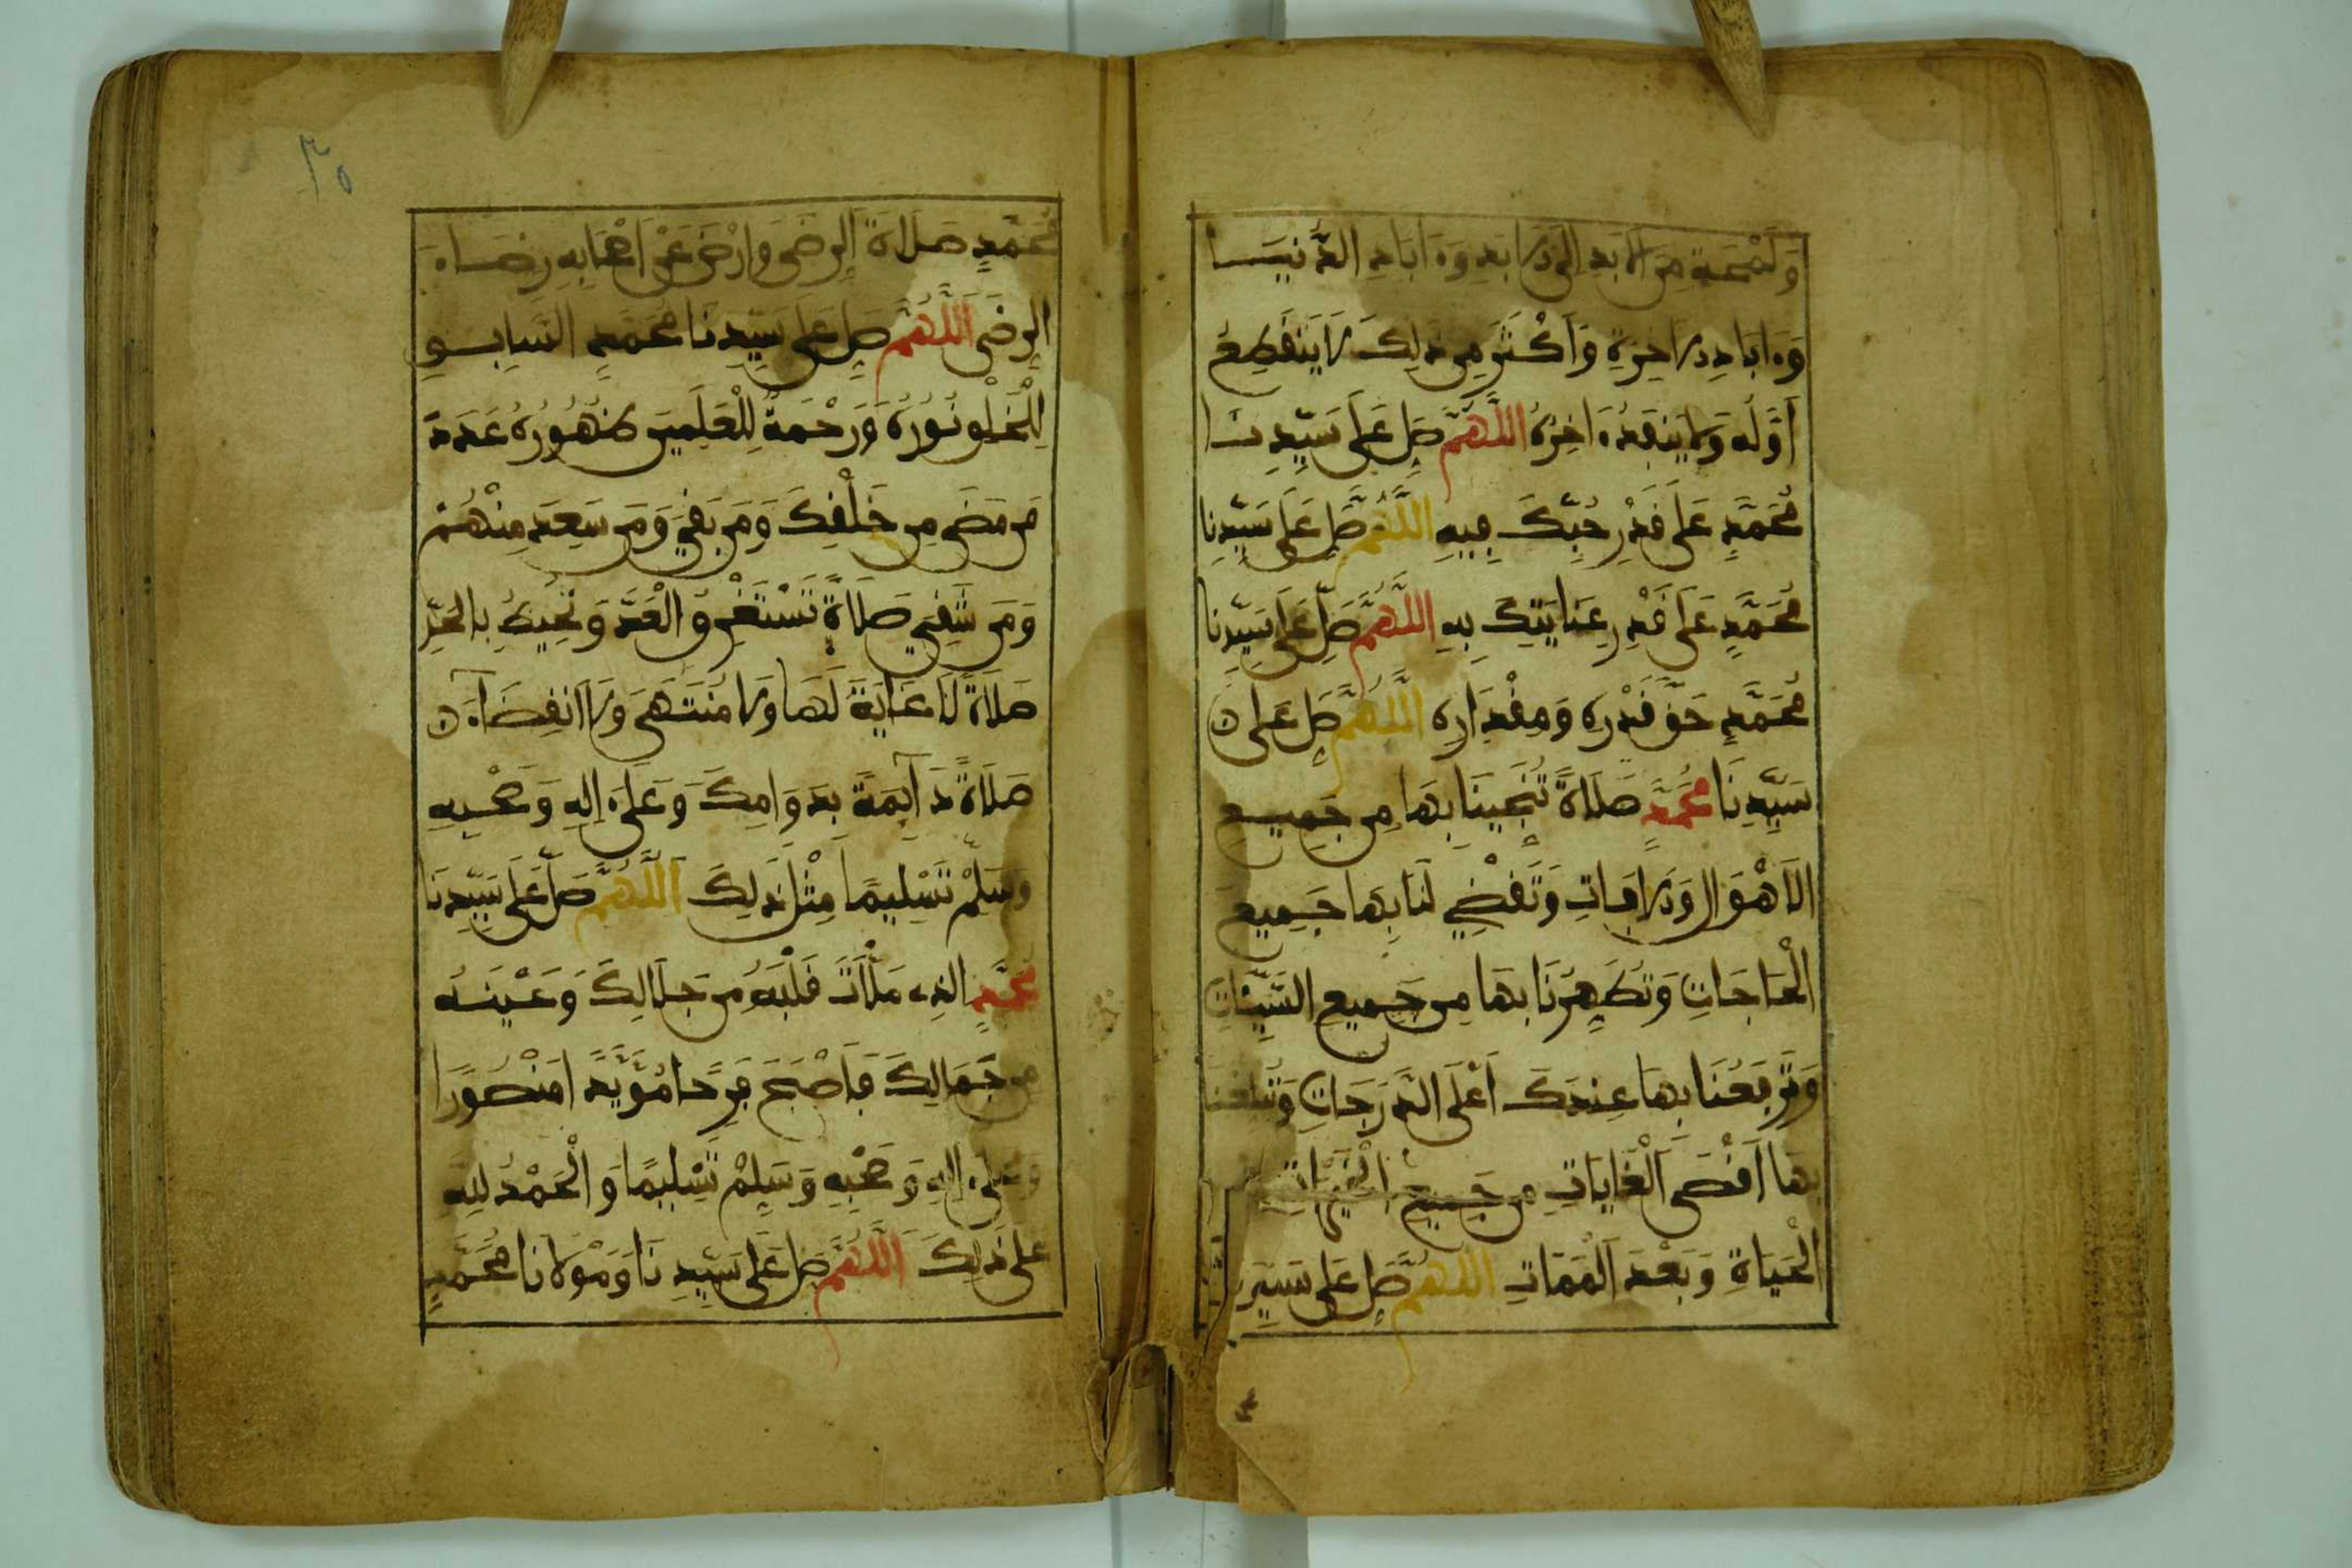 وَلَمْحَةٍ مِنَ الَابَدِ إِلَى الَابَدِ وَءَابَادِ الدُّنْيَــا
وَءَابَادِ الَاخِرَةِ وَأَكْثَرَ مِن ذَلِكَ لَا يَنْقَطِعُ
أَوَّلُهُ وَلَا يَنْفَدُ ءَاخِرُهُ اللَّهُمَّ صَلِّ عَلَى سَيِّدِنَــا
مُحَمَّدٍ عَلَى قَدْرِ حُبِّكَ فِيهِ اللَّهُمَّ صَلِّ عَلَى سَيِّدِنَا
مُحَمَّدٍ عَلَى قَدْرِ عِنَايَتِكَ بِهِ اللَّهُمَّ صَلِّ عَلَى سَيِّدِنَا
مُحَمَّدٍ حَقَّ قَدْرِهِ وَمِقْدَارِهِ اللَّهُمَّ صَلِّ عَلَى
سَيِّدِنَا مُحَمَّدٍ صَلَاةً تُنْجِينَا بِهَا مِن جَمِيــعِ
الَاهْوَالِ وَالَافَاتِ وَتَقْضِي لَنَا بِهَا جَمِيعَ
الْحَاجَاتِ وَتُطَهِّرُنَا بِهَا مِن جَمِيعِ السَّيِّئَاتِ
وَتَرْفَعُنَا بِهَا عِنْدَكَ أَعْلَى الدَّرَجَاتِ وَتُبَلِّغُنَا
بِهَا أَقْصَى الْغَايَاتِ مِن جَمِيعِ الْخَيْرَاتِ
الْحَيَاةِ وَبَعْدَ الْمَمَاتِ اللَّهُمَّ صَلِّ عَلَى سَيِّدِنَا
٣٥
مُحَمَّدٍ صَلَاةَ الرِّضَى وَارْضَ عَنْ أَصْحَابِهِ رِضَــاءَ
الرِّضَى اللَّهُمَّ صَلِّ عَلَى سَيِّدِنَا مُحَمَّدٍ السَّابِــقِ
لِلْخَلْقِ نُورُهُ وَرَحْمَةٌ لِلْعَلَمِينَ ظُهُورُهُ عَدَدَ
مَن مَضَى مِن خَلْقِكَ وَمَن بَقِيَ وَمَن سَعِدَ مِنْهُمْ
وَمَن شَقِيَ صَلَاةً تَسْتَغْرِقُ الْعَدَّ وَتُحِيطُ بِالْحَدِّ
صَلَاةً لَا غَايَةَ لَهَا وَلَا مُنْتَهَى وَلَا انْقِضَاءَ
صَلَاةً دَآئِمَةً بِدَوَامِكَ وَعَلَى ءَالِهِ وَصَحْبِهِ
وَسَلِّمْ تَسْلِيمًا مِثْلَ ذَلِكَ اللَّهُمَّ صَلِّ عَلَى سَيِّدِنَا
مُحَمَّدٍ الذِي مَلَأْتَ قَلْبَهُ مِن جَلَالِكَ وَعَيْنَــهُ
مِن جَمَالِكَ فَأَصْبَحَ فَرِحًا مُؤَيَّدًا مَنْصُورًا
وَعَلَى ءَالِهِ وَصَحْبِهِ وَسَلِّمْ تَسْلِيمًا وَالْحَمْدُ لِلهِ
عَلَى ذَلِكَ اللَّهُمَّ صَلِّ عَلَى سَيِّدِنَا وَمَوْلَانَا مُحَمَّدٍ